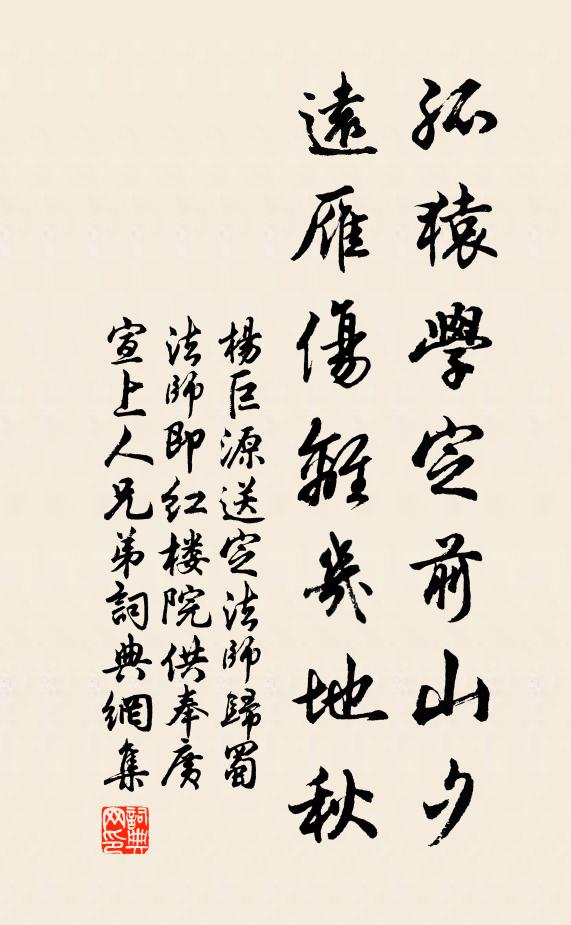 孤猿學定前山夕
遠雁傷離幾地秋
楊巨源送定法師歸蜀
法師即红楼院供奉广
宣上人兄弟詞典網集
詞典
网印